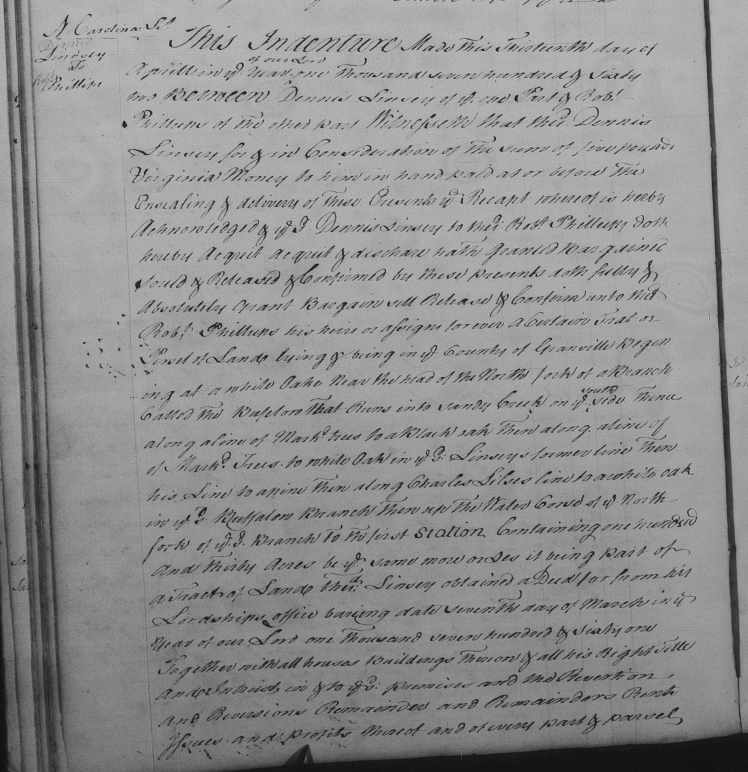 N Carolina Sct
Dennis
Lindsey
To
Robt
Phillips
This Indenture Made this Thirteenth day of
Aprill in ye Year of our Lord one Thousand seven hundred & Sixty
two Between Dennis Linsey of ye one Part & Robt
Phillups of the other part Witnesseth that the sd Dennis
Linsey for & in Consideration of the sume of five pounds
Virginia Money to him in hand paid at or before the
Ensealing & delivery of these Presents ye Receipt whereof is hereby
Acknowledged & ye sd Dennis Linsey to the sd Robt Phillups doth
hereby Acquit Acquit & discharge hath Granted Bargained
sould & Released & Confirmed by these presents doth fully &
Absolutely Grant Bargain sell Release & Confirm unto the sd
Robt Phillups his heirs or assigns for ever a Certain Trat or
Persel of Land lying & being in ye County of Granville Begin
ing at a white Oake Near the head of the North fork of a Branch
Called the Buffelow that Runs into Sandy Creek on ye south side Thence
along a line of Markt trees to a Black oak Then along a line of
of Markt Trees to white Oak in ye sd Linseys former line Then
his Line to a pine Then along Charles Lilses line to a white oak
in ye sd Buffalow Branch Then up the Water Corse of ye North
fork of ye sd Branch to the first Station Containing one hundred
And thirty Acres be ye same more or Les it being part of
a Tract of Land the sd Linsey obtained a Deed for from his
Lordships office bareing date seventh day of March in ye
Year of our Lord one Thousand seven hundred & sixty one
Together with all houses Buildings Theron & all his Right Title
and Intrust in & to ye sd premises and the Revertion
and Reversions Remainder and Remainders Rents
Issues and profits thereof and of every part & parsel